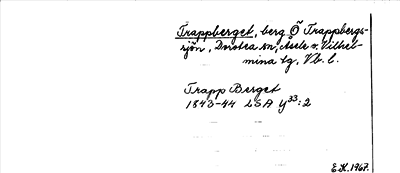 Trappberget, berg Ö Trappbergs-
sjön, Dorotea sn, Åsele o. Vilhel-
mina tg, Vb. l.
Trapp Berget
1843-44 LSA Y33:2
E.H. 1967.